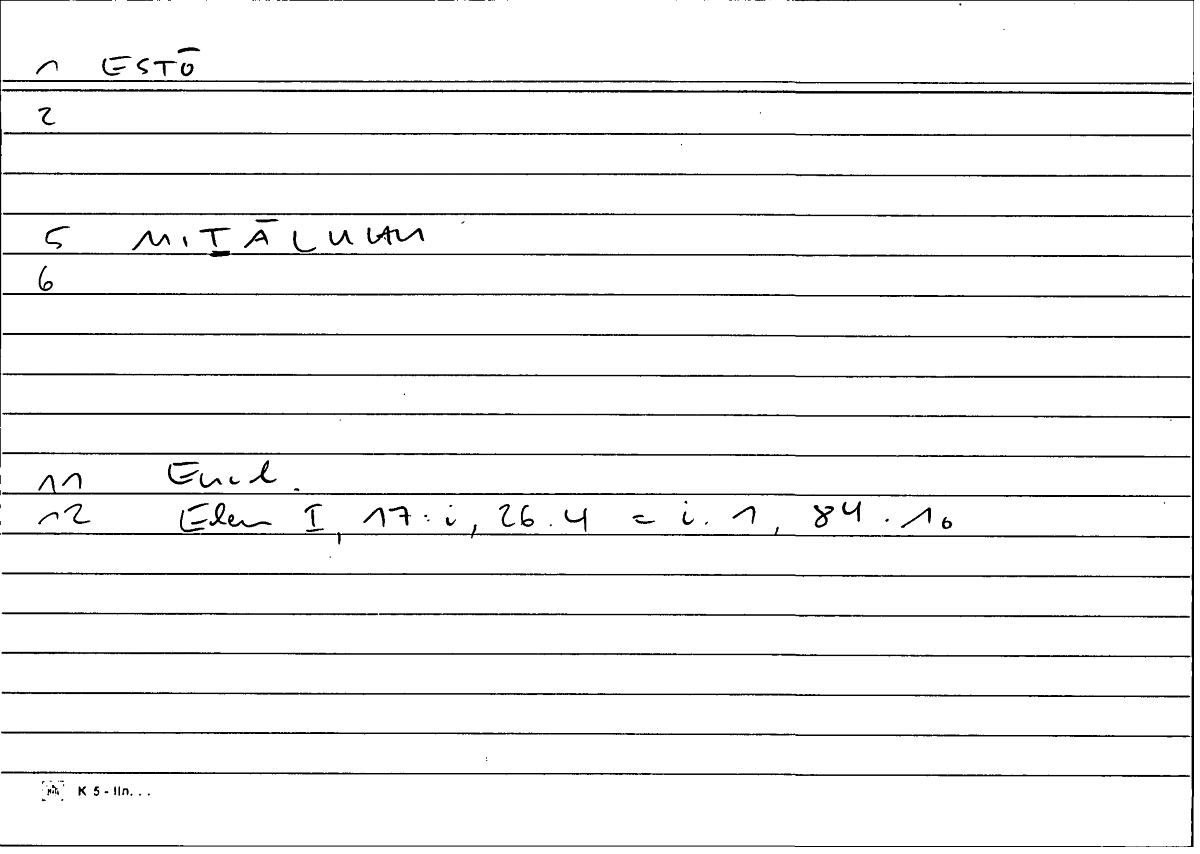 1 ESTŌ
2
5 MIṮĀLUHU
6
11 Eucl.
12 Elem I, 17: i, 26.4 = i. 1, 84.10
K 5 - lin...